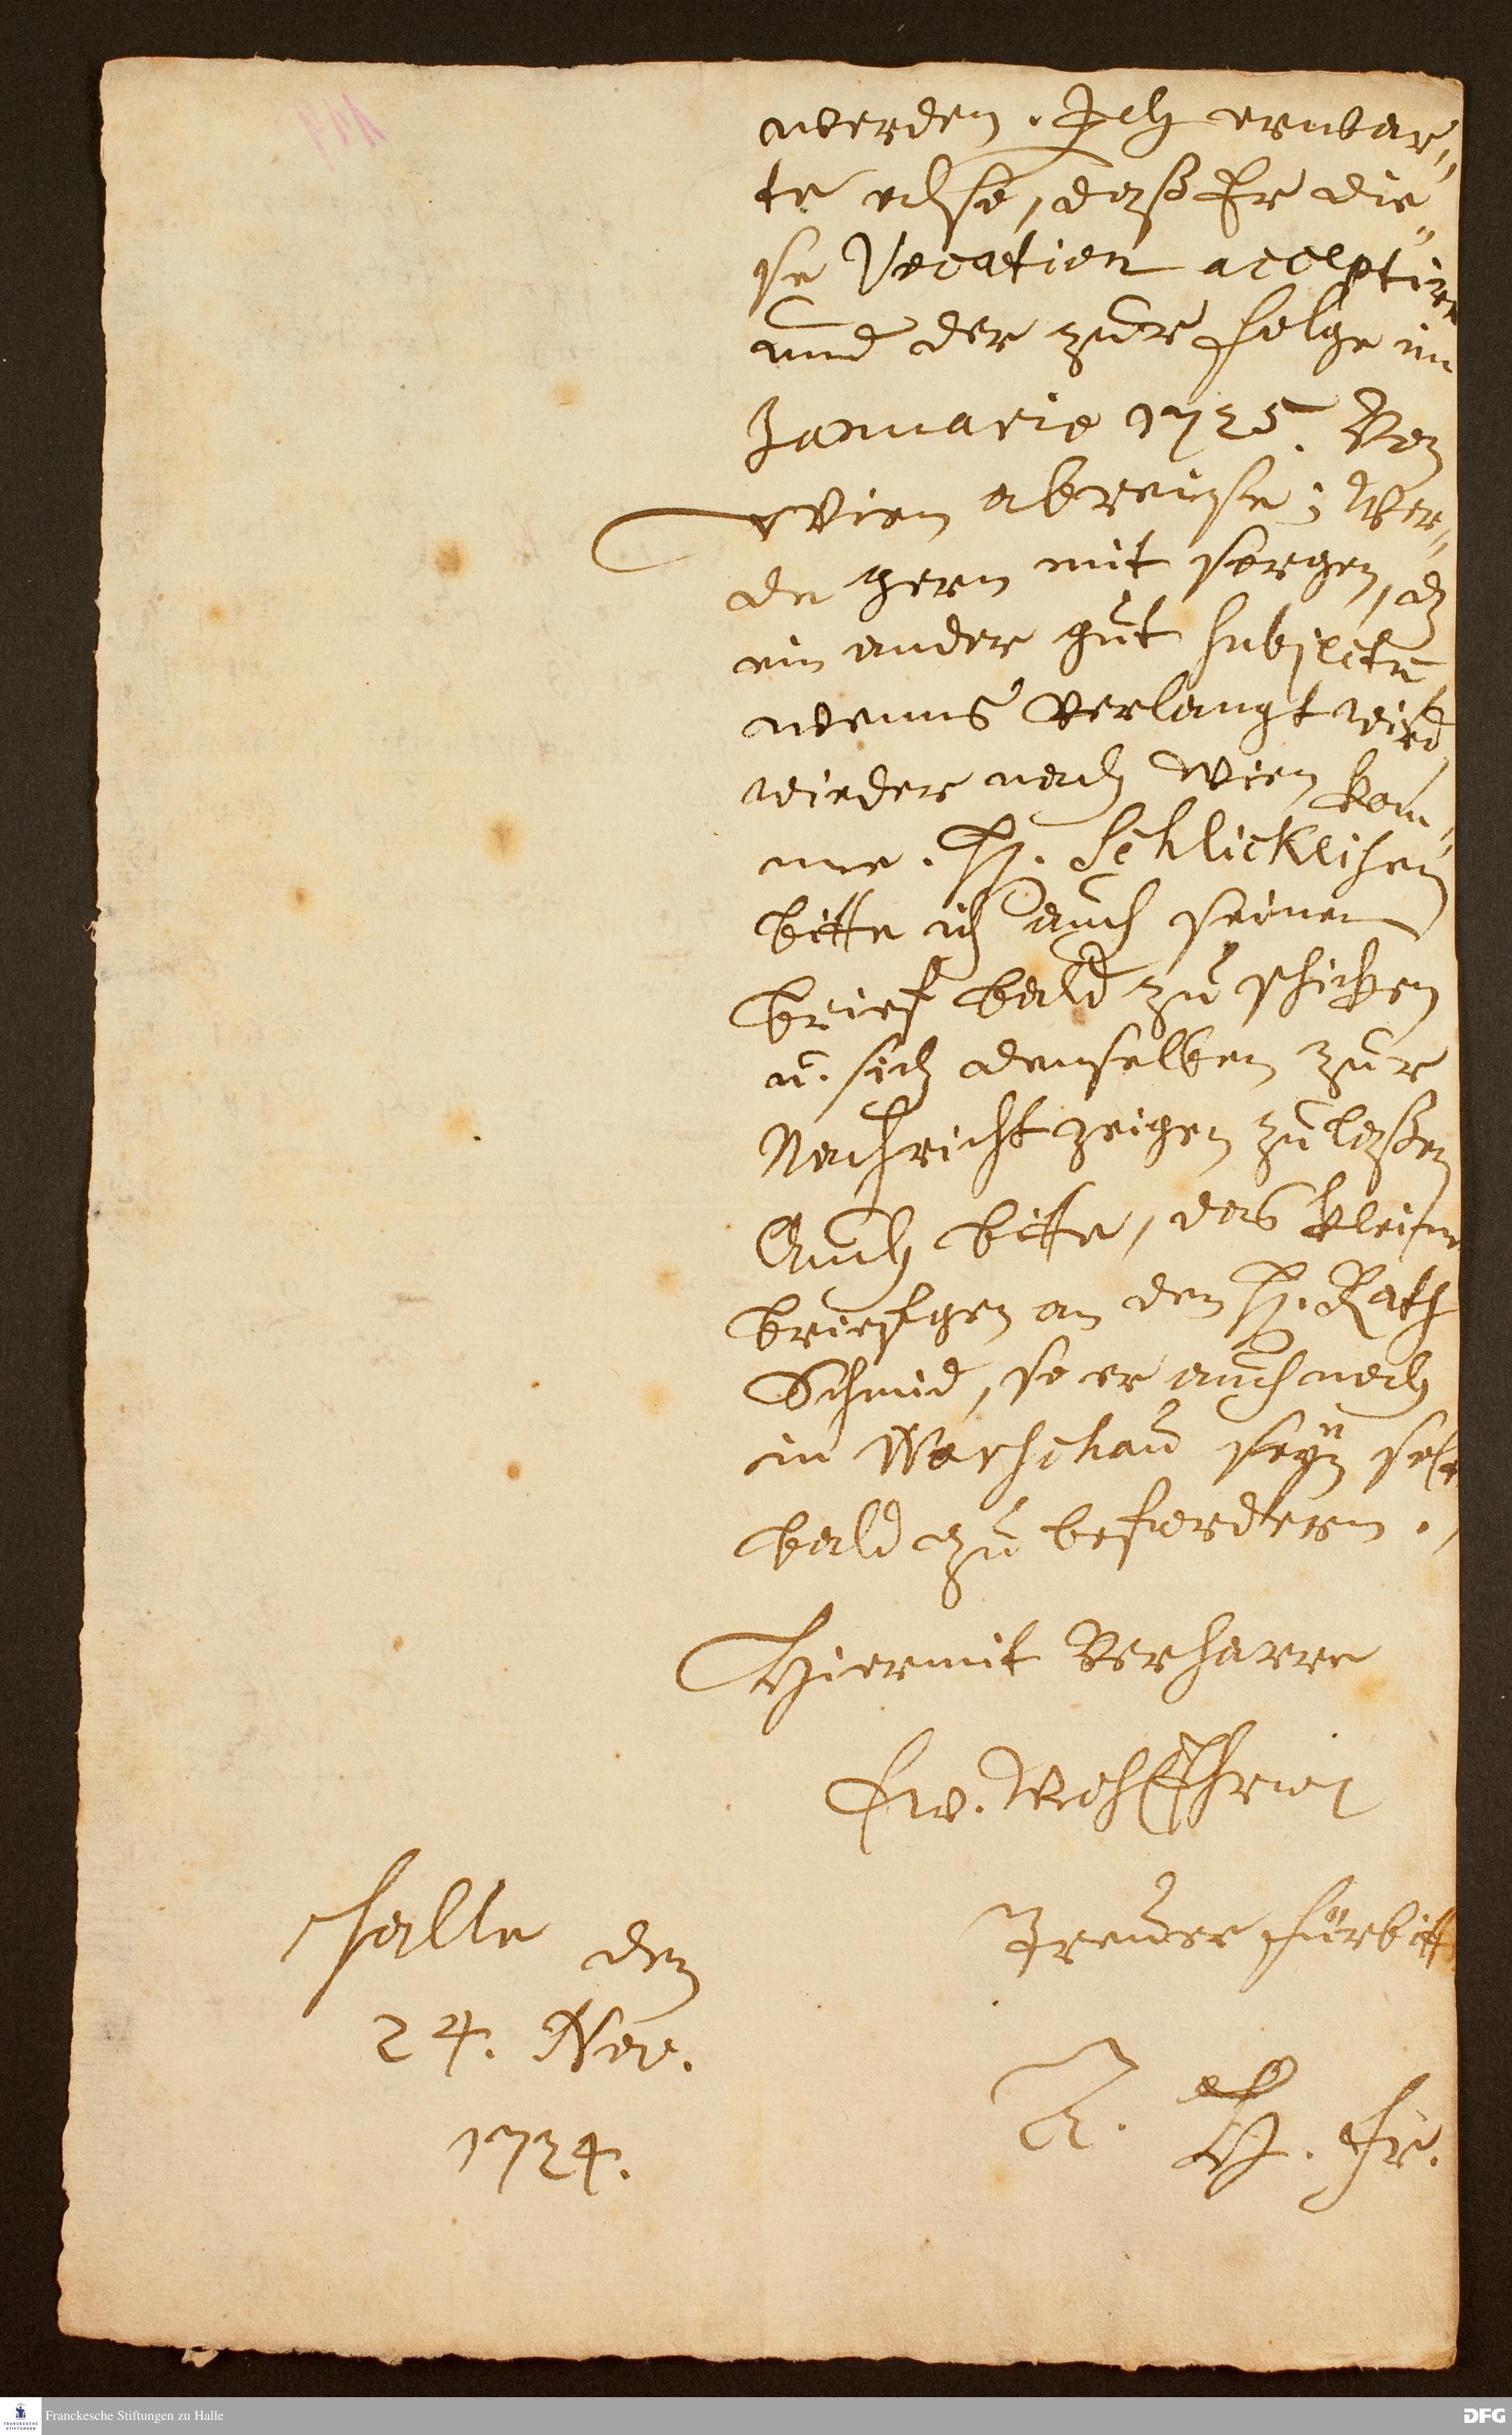 werden. Ich erwar„
te also, daß Er die„
se Vocation acceptire
und der zur folge im
Januario 1725. Von
Wien abreise; Wer„
de gern mit sorgen, dz
ein ander gut subjectū,
wenns verlangt wird,
wieder nach Wien kom„
me. H. Schlickeisen
bitte ich auch seinen
brief bald zu schicken
u. sich denselben zur
Nachricht zeigen zu laßen
Auch bitte, das kleine
briefgen an den H. Rath
Schmid, so er auch noch
in Warschau seyn solte
bald zu befordern.
Hiermit Verharre
Ew. WohlEhrw
Treuer fürbitt
Halle den
24. Nov.
1724.
A. H. Fr.
Franckesche Stiftungen zu Halle
FRANCKESCHE STIFTUNGEN
DFG